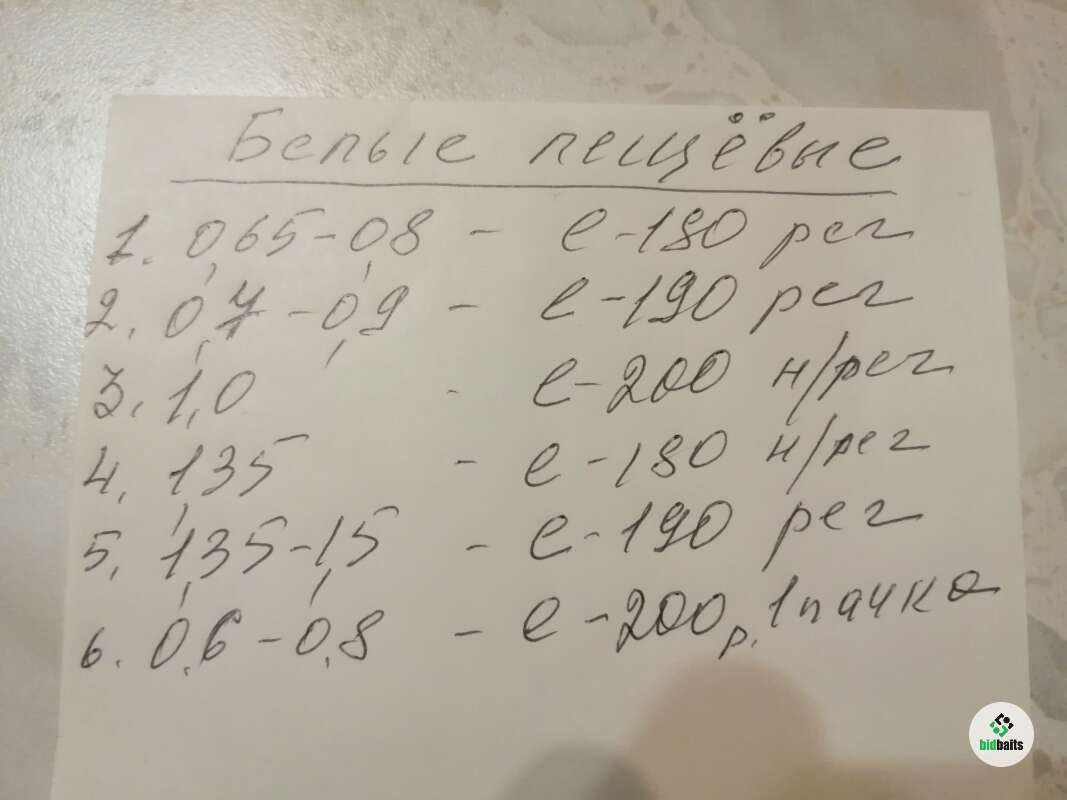 Белые пещёвые
1. 0,65-0,8 - l-180 рег
2. 0,7-0,9 - l-190 рег
3. 1,0 - l-200 н/рег
4. 1,35 - l-180 н/рег
5. 1,35-1,5 - l-190 рег
6. 0,6-0,8 - l-200 р. 1 пачка
bidbaits